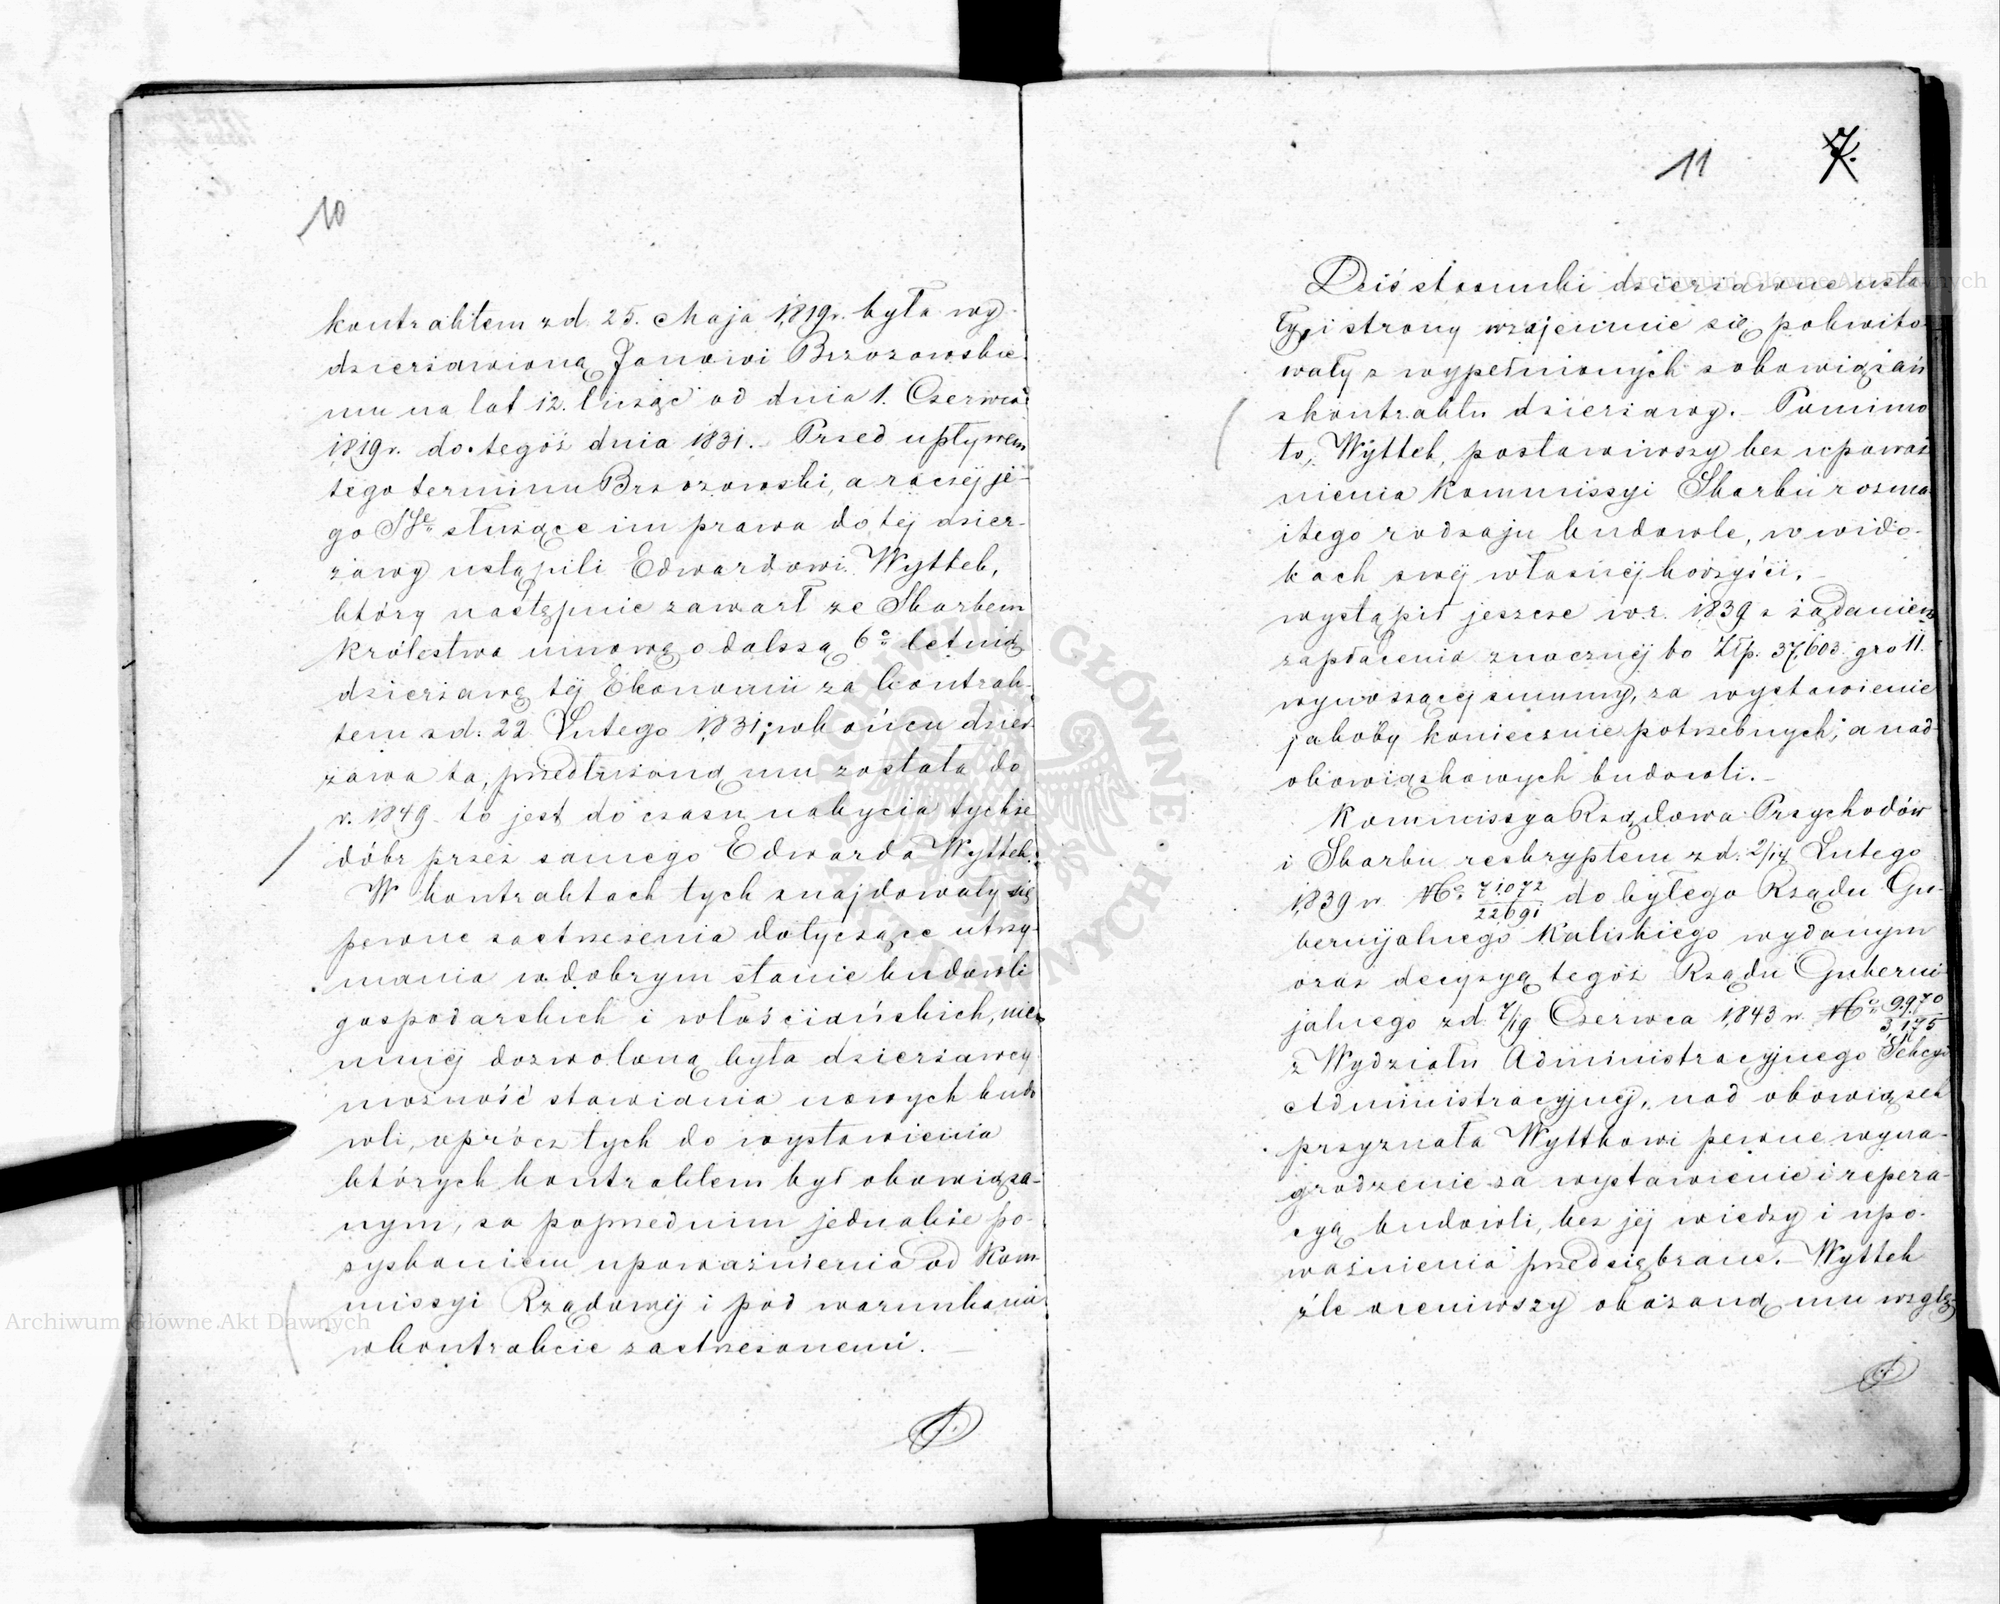 10
kontraktem z d. 25. Maja 1819 r. była wy-
dzierżawioną Janowi Brzozowskie-
mu na lat 12. licząc od dnia 1. Czerwca
1819 r. do tegoż dnia 1831. Przed upływem
tego terminu Brzozowski, a raczej je-
go służące im prawa do tej dzier-
żawy ustąpili Edwardowi Wyttek,
który następnie zawarł ze Skarbem
królestwa umowę o dalszą 6o letnią
dzierżawę tej Ekonomii za kontrak-
tem z d. 22 Lutego 1831; w końcu dzier-
żawa ta, przedłużoną mu została do
r. 1849 to jest do czasu nabycia tychże
dóbr przez samego Edwarda Wyttek.
W kontraktach tych znajdowały się
pewne zastrzeżenia dotyczące utrzy-
mania w dobrym stanie budowli
gospodarskich i włościańskich, nie-
mniej dozwoloną była dzierżawcy
możność stawiania nowych budo
wli, oprócz tych do wystawienia
których kontraktem był obowiąza-
nym, za poprzednim jednakże po-
zyskaniem upoważnienia od Kom
missyi Rządowej i pod warunkami
w kontrakcie zastrzeżonemi.
11
7.
Dziś stosunki dzierżawne usta-
ły, i strony wzajemnie się pokwito-
wały z wypełnionych zobowiązań
z kontraktu dzierżawy. Pomimo
to, Wyttek, postawiwszy bez upoważ
nienia Kommissyi Skarbu rozma-
itego rodzaju budowle, w wido-
kach swej własnej korzyści,
wystąpił jeszcze w r. 1839 z żądaniem
zapłacenia znacznej bo Złp. 37,603 gro 11.
wynoszącej summy, za wystawienie
jakoby koniecznie potrzebnych, a nad-
obowiązkowych budowli.
Kommissya Rządowa Przychodów
i Skarbu reskryptem z d. 2/14 Lutego
1839 r. No 71072/22691 do byłego Rządu Gu-
bernijalnego Kaliskiego wydanym
oraz decyzyą tegoż Rządu Guberni-
jalnego z d. 7/19 Czerwca 1843 r. No 9970/3175
z Wydziału Administracyjnego Sekcyi
Administracyjnej, nad obowiązek
przyznała Wyttkowi pewne wyna-
grodzenie za wystawienie i repera-
cyą budowli, bez jej wiedzy i upo-
ważnienia przedsiębrane. Wyttek
źle oceniwszy okazaną mu wzglę-
Archiwum Główne Akt Dawnych
Archiwum Główne Akt Dawnych
ARCHIWUM GŁÓWNE AKT DAWNYCH